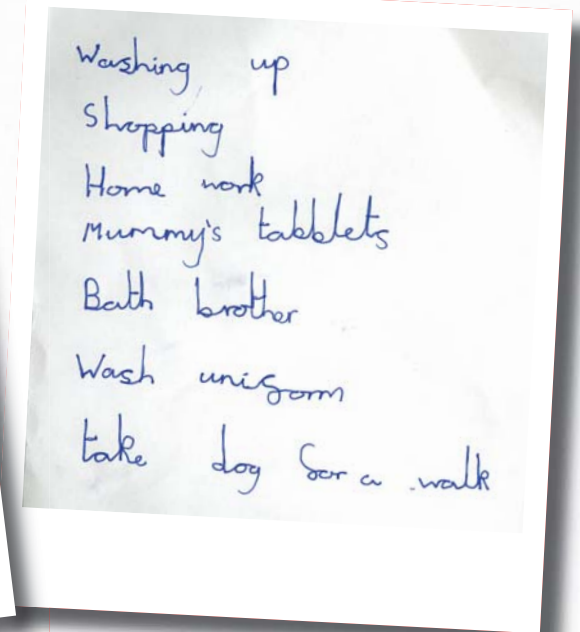 Washing up
Shopping
Home work
Mummy's tabblets
Bath brother
Wash uniform
take dog for a walk